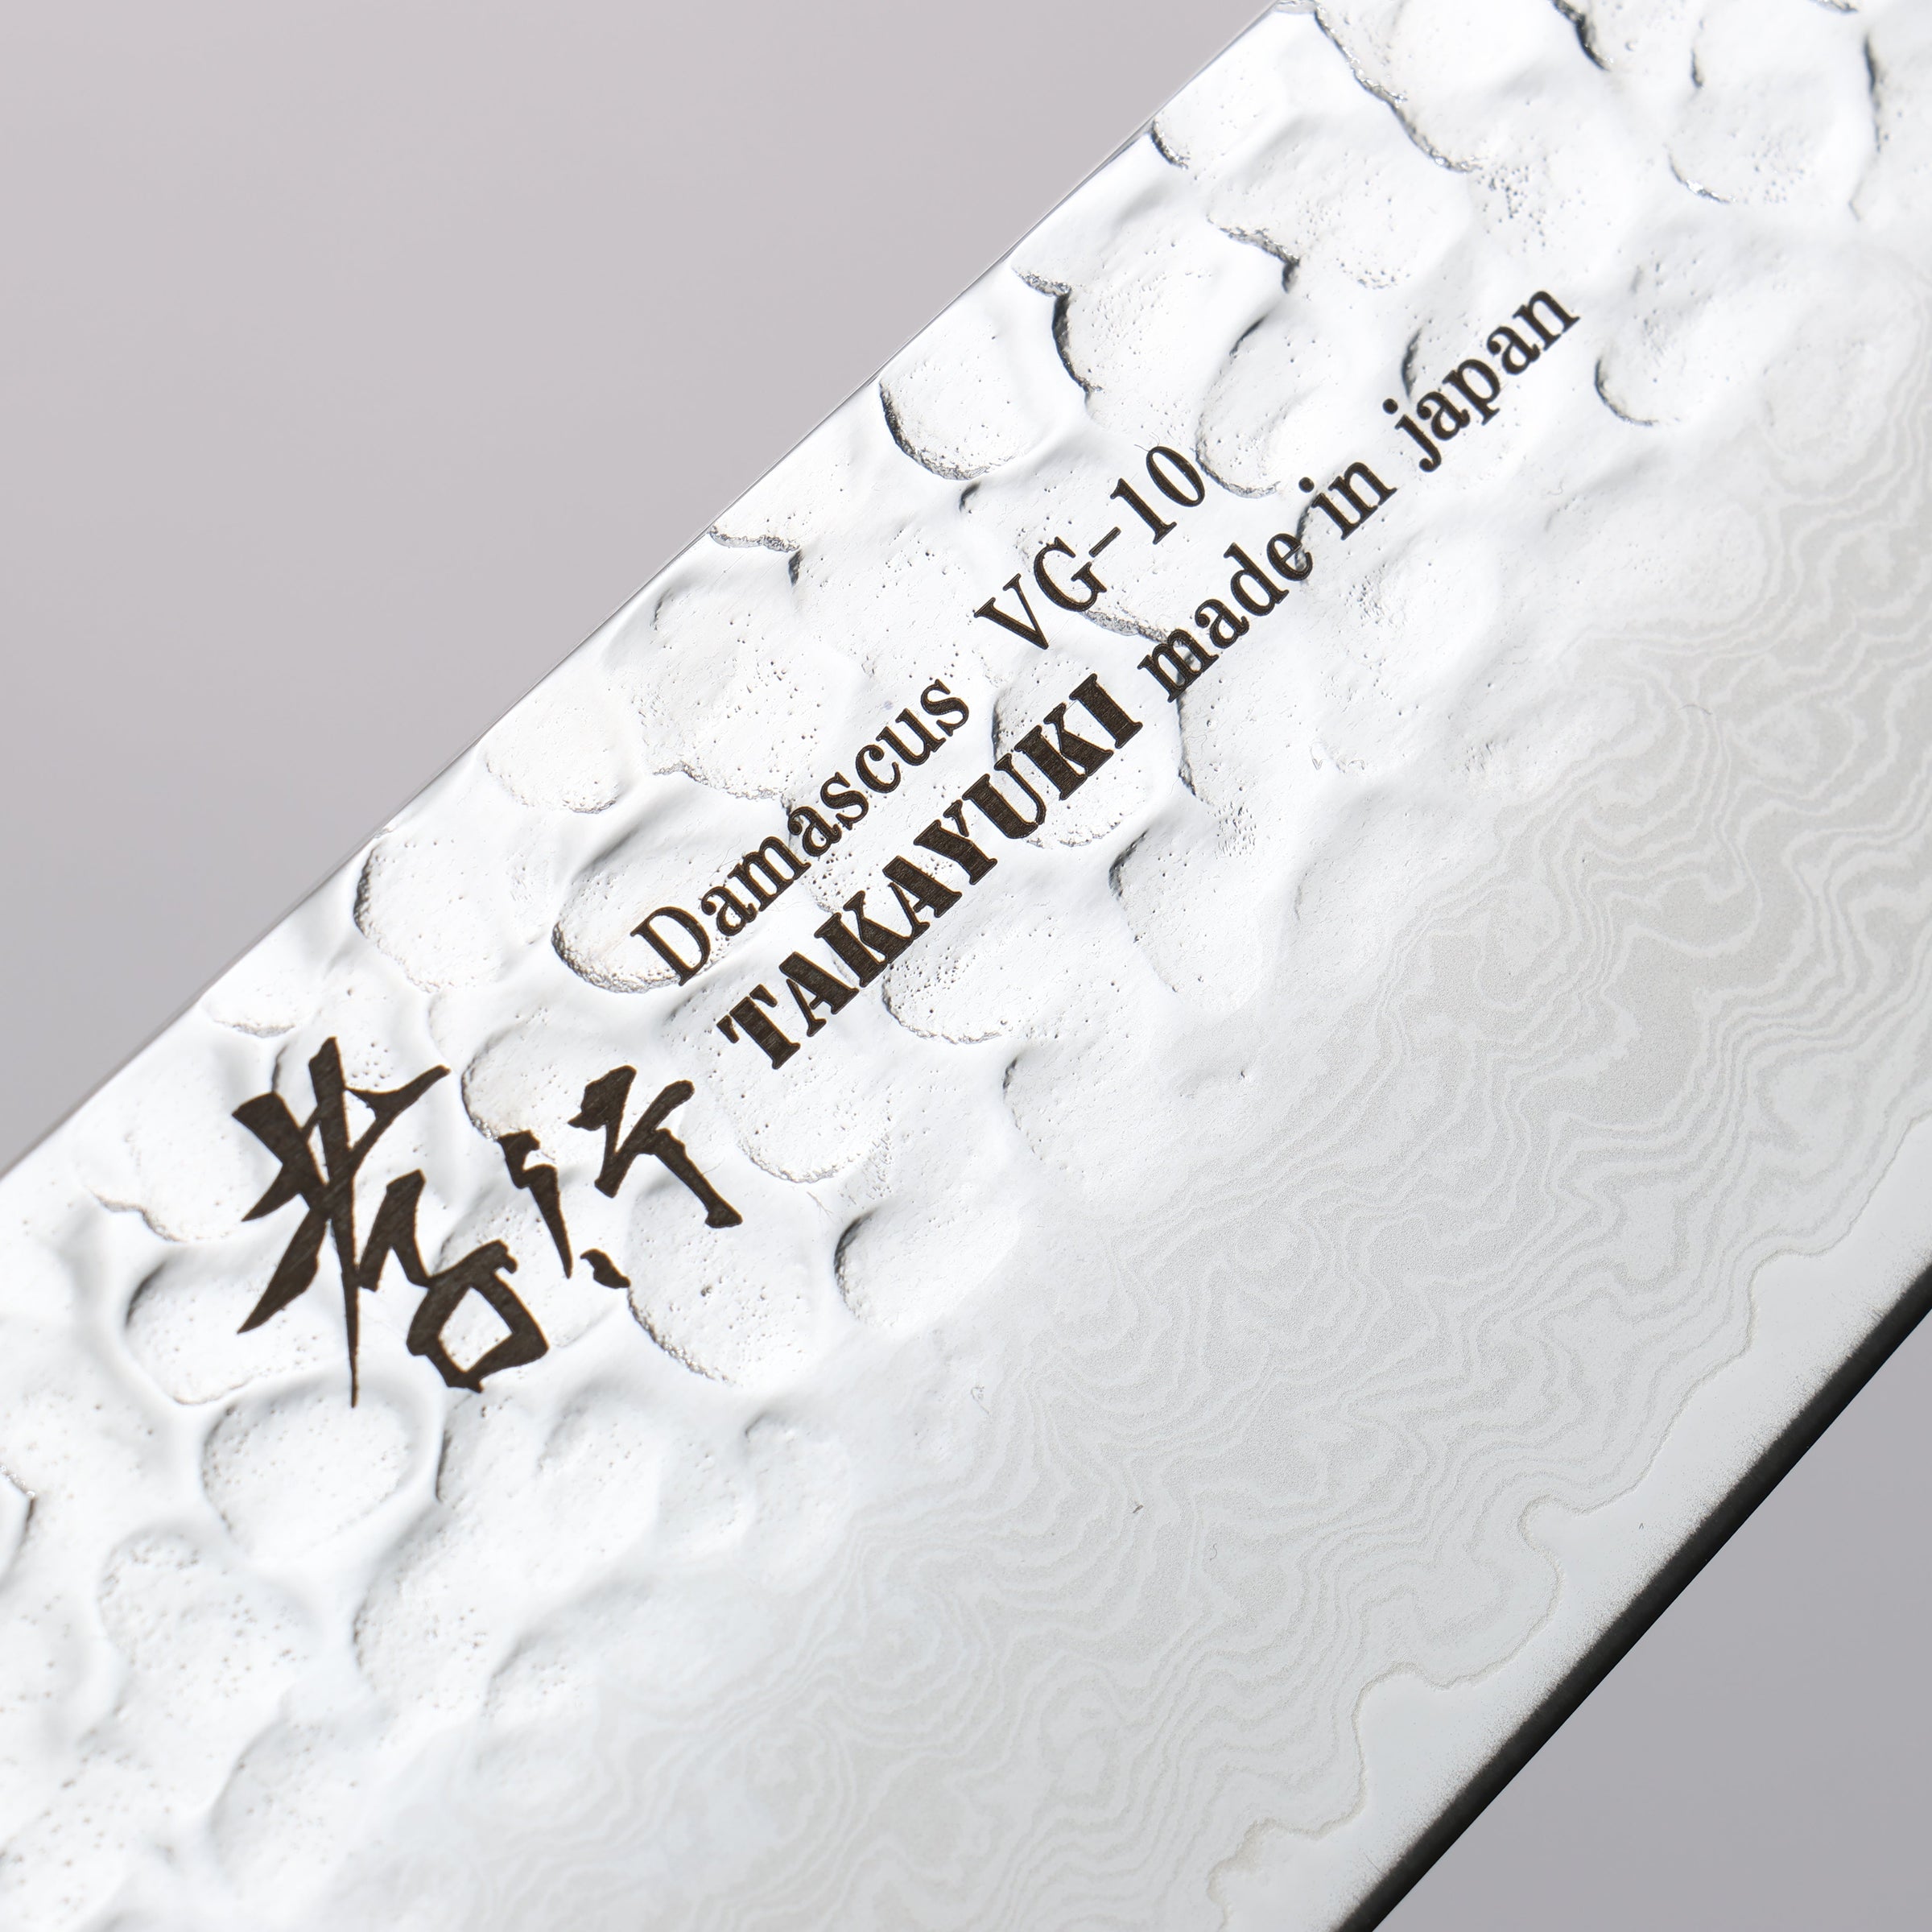 Damascus VG-10
TAKAYUKI made in japan